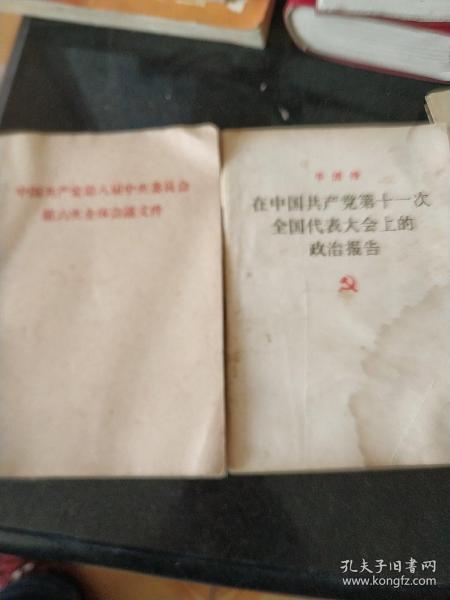 中国共产党第八届中央委员会
第六次全体会议文件
华国锋
在中国共产党第十一次
全国代表大会上的
政治报告
孔夫子旧书网
www.kongfz.com